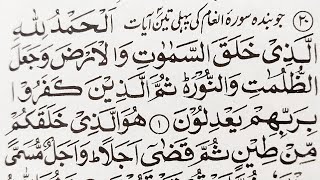 (۲۰) جو بندہ سورۃ انعام کی پہلی تین آیات اَلْحَمْدُ لِلّٰهِ
الَّذِیْ خَلَقَ السَّمٰوٰتِ وَالْاَرْضَ وَجَعَلَ
الظُّلُمٰتِ وَالنُّوْرَ ۥؕ ثُمَّ الَّذِیْنَ كَفَرُوْا
بِرَبِّهِمْ یَعْدِلُوْنَ ﴿۱﴾ هُوَ الَّذِیْ خَلَقَكُمْ
مِّنْ طِیْنٍ ثُمَّ قَضٰۤی اَجَلًا ؕ وَاَجَلٌ مُّسَمًّی